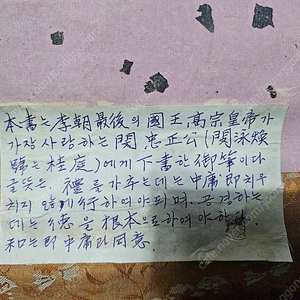 本書는 李朝最後의 國王高宗皇帝가
가장 사랑하는 閔忠正公(閔泳煥
號는 桂庭)에게 下書한 御筆이다
글뜻은. 禮를 가추는데는 中庸即치우
치지 않게 行하여야 되며. 공경하는
데는 德을 根本으로 하여야 하
和는 即 中庸과 同意.